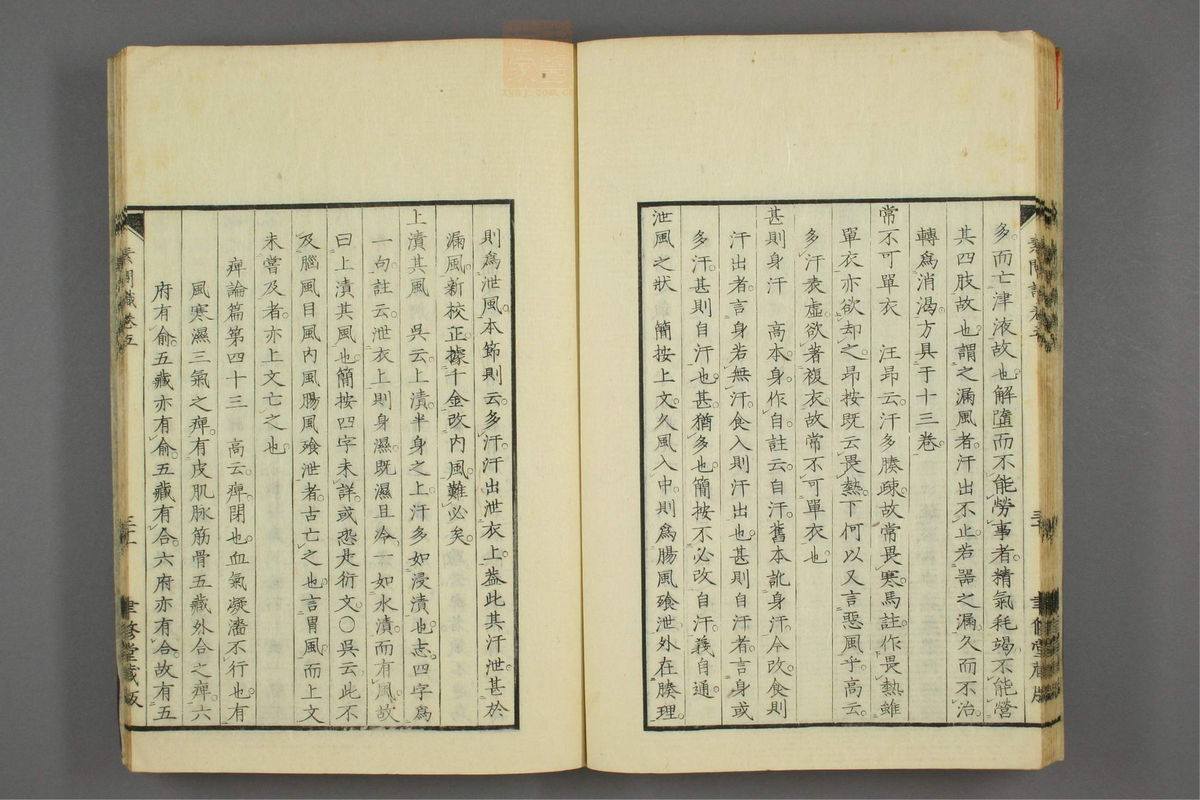 多而亡津液故也解墮而不能勞事者精氣耗竭不能營
其四肢故也謂之漏風者汗出不止若器之漏久而不治
轉爲消渴方具于十三卷
常不可單衣　汪昂云汗多腠疎故常畏寒馬註作畏熱雖
單衣亦欲却之昂按既云畏熱下何以又言惡風乎高云
多汗表虛欲著複衣故常不可單衣也
甚則身汗　高本身作自註云自汗舊本訛身汗今改食則
汗出者言身若無汗食入則汗出也甚則自汗者言身或
多汗甚則自汗也甚猶多也簡按不必改自汗義自通
泄風之狀　簡按上文久風入中則爲腸風飱泄外在腠理
素問識卷五
三十一
聿修堂藏版
則爲泄風本節則云多汗汗出泄衣上蓋此其汗泄甚於
漏風新校正據千金改内風難必矣
上漬其風　吳云上漬半身之上汗多如浸漬也志四字爲
一句註云泄衣上則身濕既濕且冷一如水漬而有風故
曰上漬其風也簡按四字未詳或恐是衍文○吳云此不
及腦風目風内風腸風飱泄者古亡之也言胃風而上文
未嘗及者亦上文亡之也
痺論篇第四十三　高云痺閉也血氣凝濇不行也有
風寒濕三氣之痺有皮肌脉筋骨五藏外合之痺六
府有俞五藏亦有俞五藏有合六府亦有合故有五